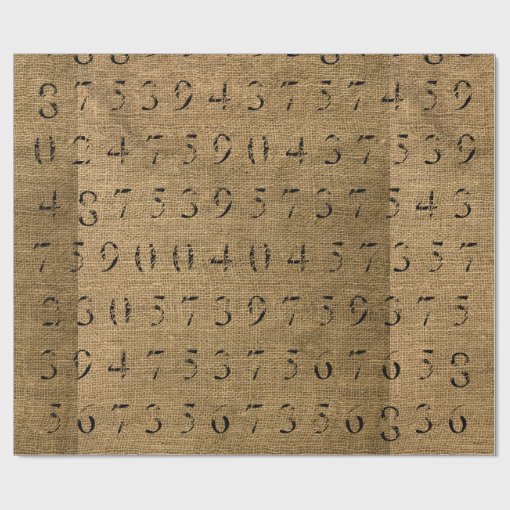 3 7 5 3 9 4 3 7 5 7 4 5 9
0 2 4 7 5 9 0 4 3 7 5 3 9
4 3 7 5 3 9 5 7 3 7 5 4 3
7 5 9 0 0 4 0 4 5 7 3 5 7
3 3 0 5 7 3 9 7 5 9 3 7 5
3 9 4 7 5 3 7 5 6 7 6 5 3
5 6 7 3 5 6 7 3 5 6 3 3 6